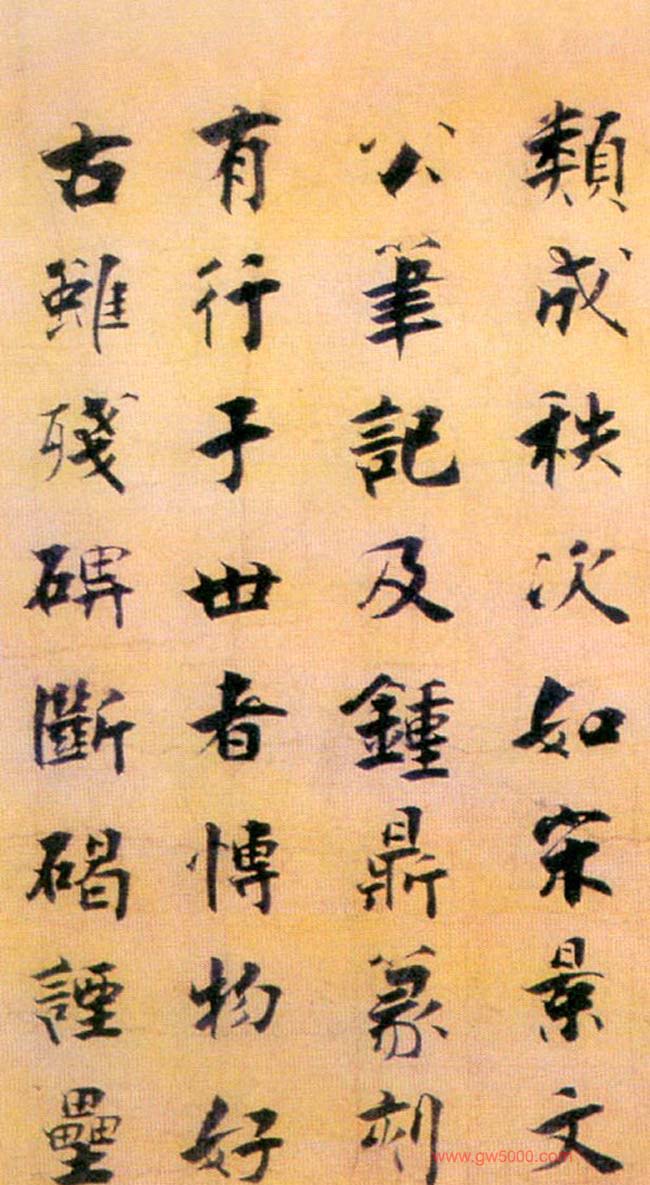 類成秩次如宋景文
公筆記及鍾鼎篆刻
有行于世者博物好
古雖殘碑斷碣諲壘
www.gw5000.com